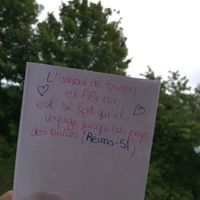 L'amour de Gwen
et Alexis
est si fort qu'il
voyage jusqu'au pays
des bulles (Reims-51)